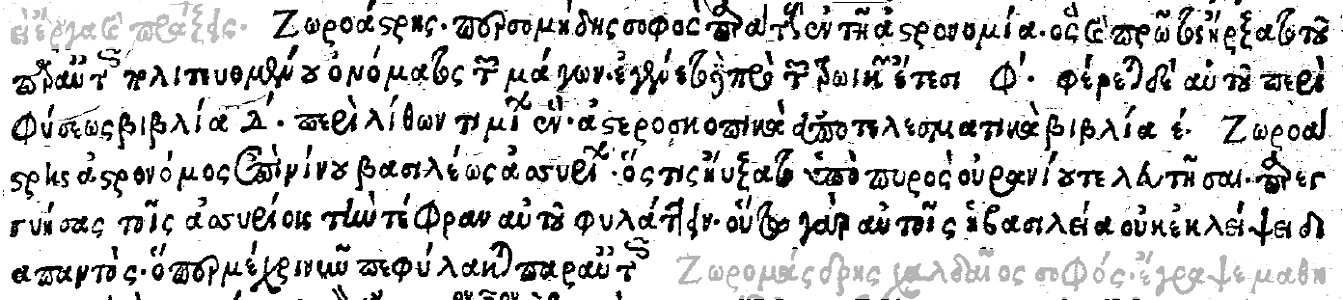 πράξεις· Ζωροάστρης· περσομήδης σοφὸς παρὰ τοῖς ἐν τῇ ἀστρονομία· ὃς καὶ πρῶτος ἦρξατο τοῦ
παρ' αὐτοῖς πολιτευομένου ὀνόματος τῶν μάγων· ἐγένετο δὲ πρὸ τῶν τρωικῶν ἔτεσι φ'· φέρεται δὲ αὐτοῦ περὶ
φύσεως βιβλία δ'· περὶ λίθων τιμίων ἓν· ἀστεροσκοπικὰ ἀποτελεσματικὰ βιβλία έ· Ζωροά
στρης ἀστρονόμος ἐπὶ νίνου βασιλέως ἀσσυρίων· ὅστις ηὔξατο ὑπὸ πυρὸς οὐρανίου τελευτῆσαι· παρεγ
γυήσας τοῖς ἀσσυρίοις τὴν τέφραν αὐτοῦ φυλάττειν· οὕτω γὰρ αὐτοῖς ἡ βασιλεία οὐκ ἐκλείψει δι
απαντός· ὅπερ μέχρι νῦν πεφύλακται παρ' αὐτοῖς Ζωρομάσδρης χαλδαῖος σοφός· ἔγραψε μαθη